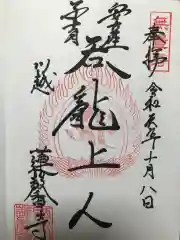 奉拝 令和元年十月八日
安産
子育
呑龍上人
川越
蓮馨寺